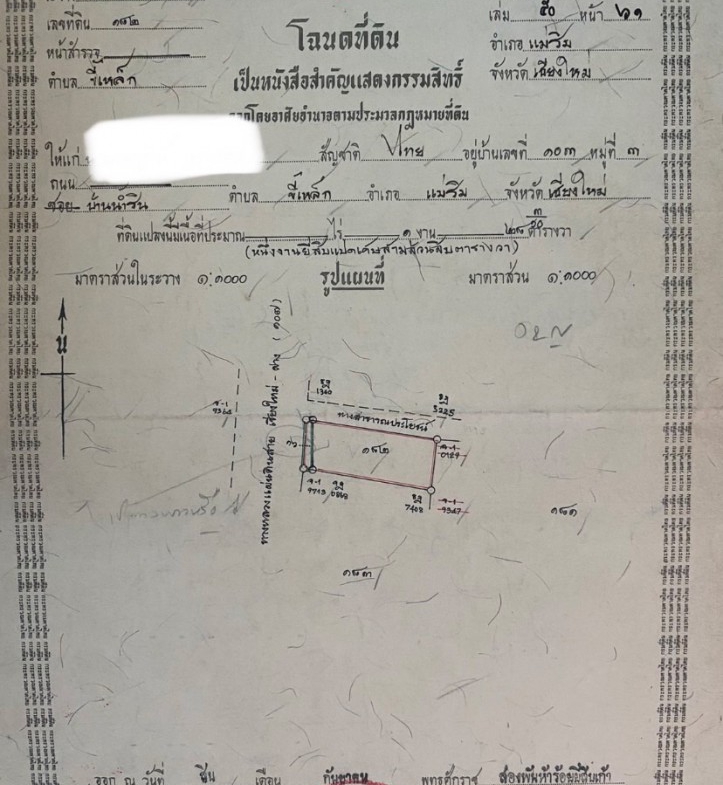 เลขที่ดิน ๑๘๒
โฉนดที่ดิน
เล่ม ๕๐ หน้า ๖๑
หน้าสำรวจ
อำเภอ แม่ริม
ตำบล ขี้เหล็ก
เป็นหนังสือสำคัญแสดงกรรมสิทธิ์
จังหวัด เชียงใหม่
ออกโดยอาศัยอำนาจตามประมวลกฎหมายที่ดิน
ให้แก่
สัญชาติ ไทย อยู่บ้านเลขที่ ๑๐๓ หมู่ที่ ๓
ถนน
ซอย บ้านน้ำริน ตำบล ขี้เหล็ก อำเภอ แม่ริม จังหวัด เชียงใหม่
ที่ดินแปลงนี้มีเนื้อที่ประมาณ ไร่ ๑ งาน ๒๘ ๓/๑๐ ตารางวา
(หนึ่งงานยี่สิบแปดเศษสามส่วนสิบตารางวา)
มาตราส่วนในระวาง ๑:๑๐๐๐
รูปแผนที่
มาตราส่วน ๑:๑๐๐๐
น
ทางหลวงแผ่นดินสาย เชียงใหม่ - ฝาง (๑๐๗)
1360
5225
ทางสาธารณประโยชน์
๑๘๒
7408
๑๘๑
๑๘๓
ออก ณ วันที่ เดือน กันยายน พุทธศักราช สองพันห้าร้อยยี่สิบเก้า